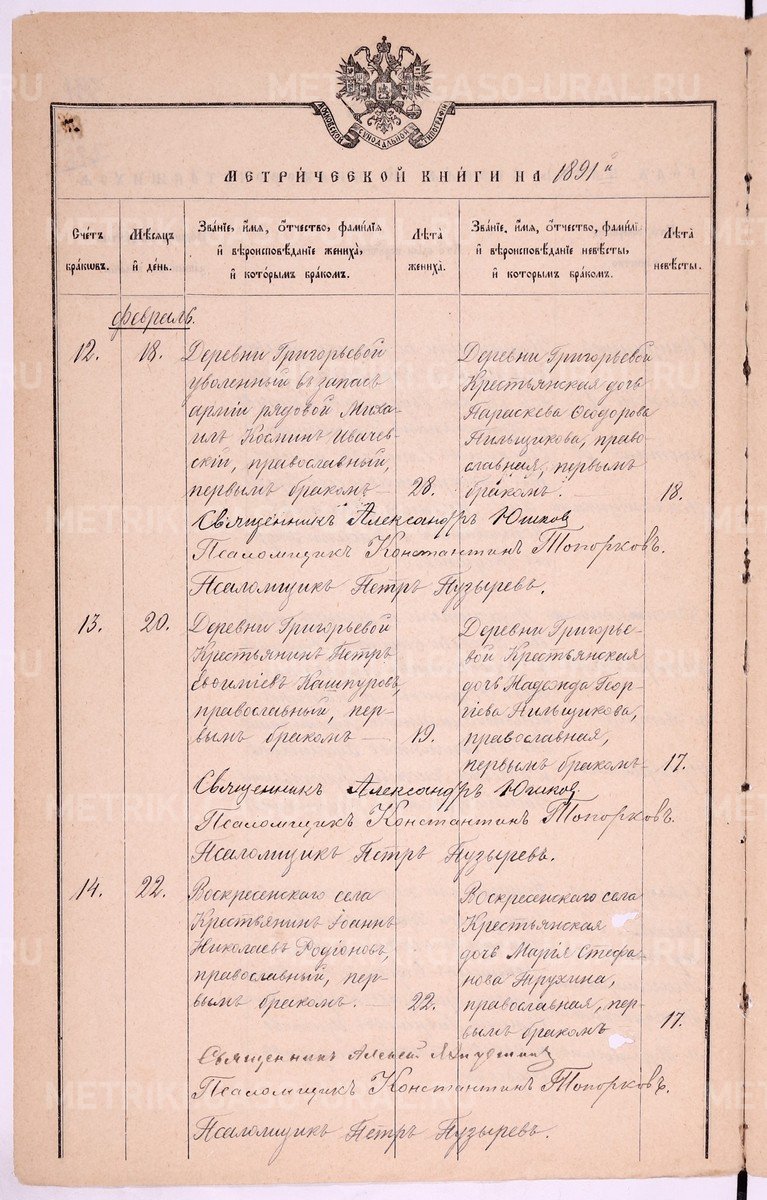 МОСКОВСКОЙ СѴНОДАЛЬНОЙ ТИПОГРАФІИ
МЕТРИ́ЧЕСКОЙ КНИ́ГИ НА 1891й
Сче́тъ бра́ковъ.
Мѣ́сяцъ й де́нь.
Зва́нїе, и́мя, о́тчество, фами́лїя й вѣроисповѣ́данїе жениха̀, й кото́рымъ бра́комъ.
Лѣ́та жениха̀.
Зва́нїе, и́мя, о́тчество, фами́лї й вѣроисповѣ́данїе невѣ́сты, й которымъ бра́комъ.
Лѣ́та невѣ́сты.
Февраль.
12. 18.
Деревни Григорьевой
уволенный въ запасъ
арміи рядовой Миха-
илъ Косминъ Ивачев-
скій, православный,
первымъ бракомъ — 28.
Деревни Григорьевой
Крестьянская дочь
Параскева Ѳеодорова
Пильщикова, право-
славная, первымъ
бракомъ. — 18.
Священникъ Александръ Юшков
Псаломщикъ Константинъ Топорковъ.
Псаломщикъ Петръ Пузыревъ.
13. 20.
Деревни Григорьевой
Крестьянинъ Петръ
Евѳиміевъ Кашпуровъ,
православный, пер-
вымъ бракомъ — 19.
Деревни Григорье-
вой Крестьянская
дочь Надежда Геор-
гіева Пильщикова,
православная,
первымъ бракомъ — 17.
Священникъ Александръ Юшков
Псаломщикъ Константинъ Топорковъ.
Псаломщикъ Петръ Пузыревъ.
14. 22.
Воскресенскаго села
Крестьянинъ Іоаннъ
Николаевъ Родіоновъ,
православный, пер-
вымъ бракомъ. — 22.
Воскресенскаго села
Крестьянская
дочь Марія Стефа-
нова Трухина,
православная, пер-
вымъ бракомъ 17.
Священникъ Алексей
Псаломщикъ Константинъ Топорковъ.
Псаломщикъ Петръ Пузыревъ.